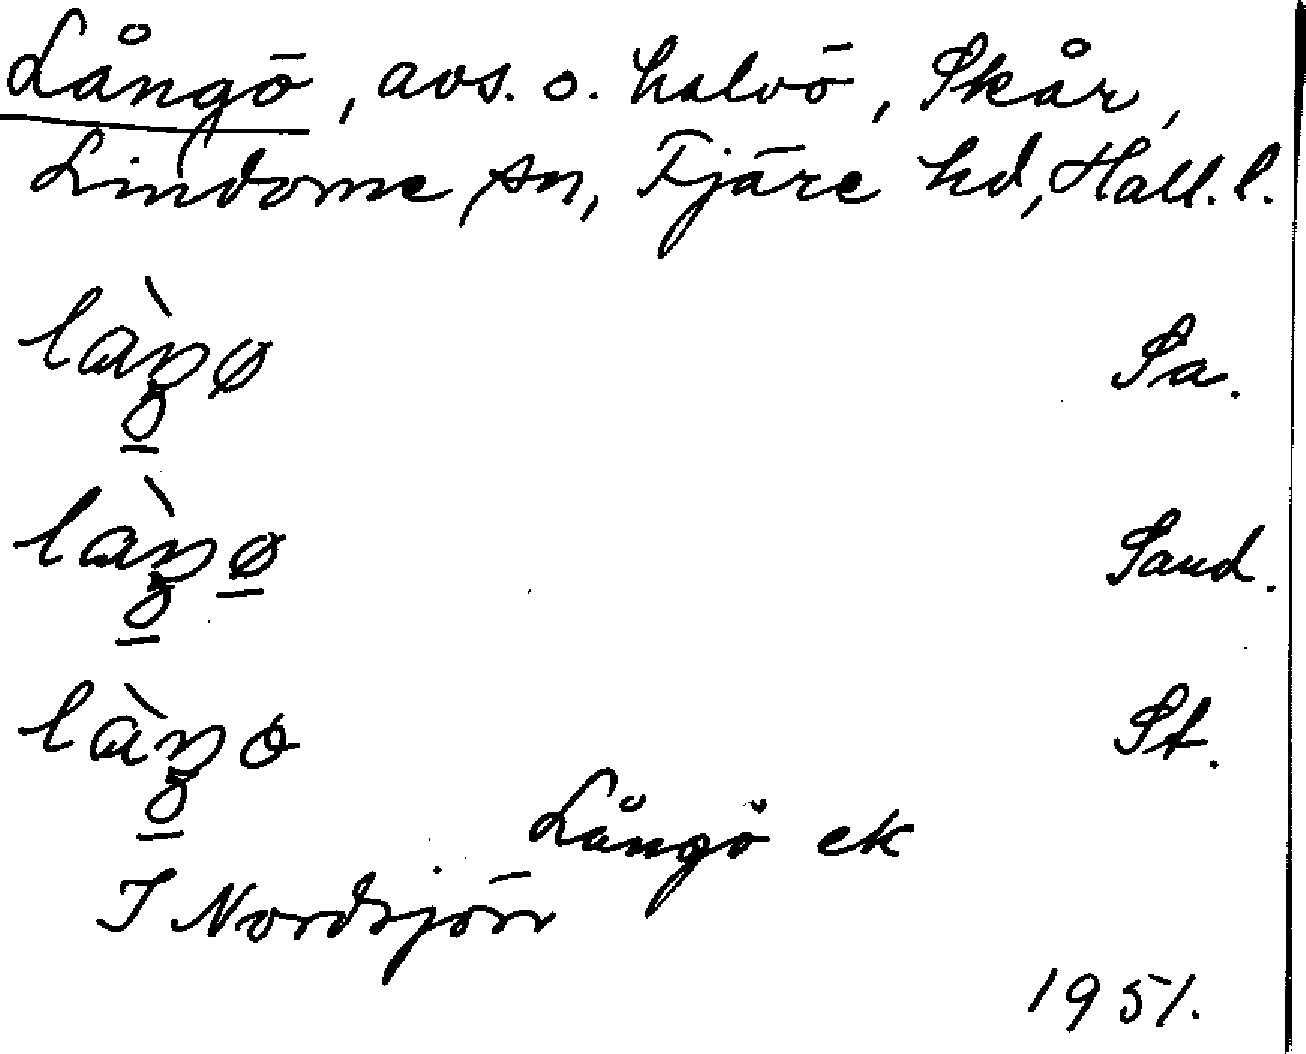 Långö, avs. o. halvö, Skår,
Lindome sn, Fjäre hd, Hall. l.
Sa.
Sand.
St.
Långö ek
I Nordsjön
1951.